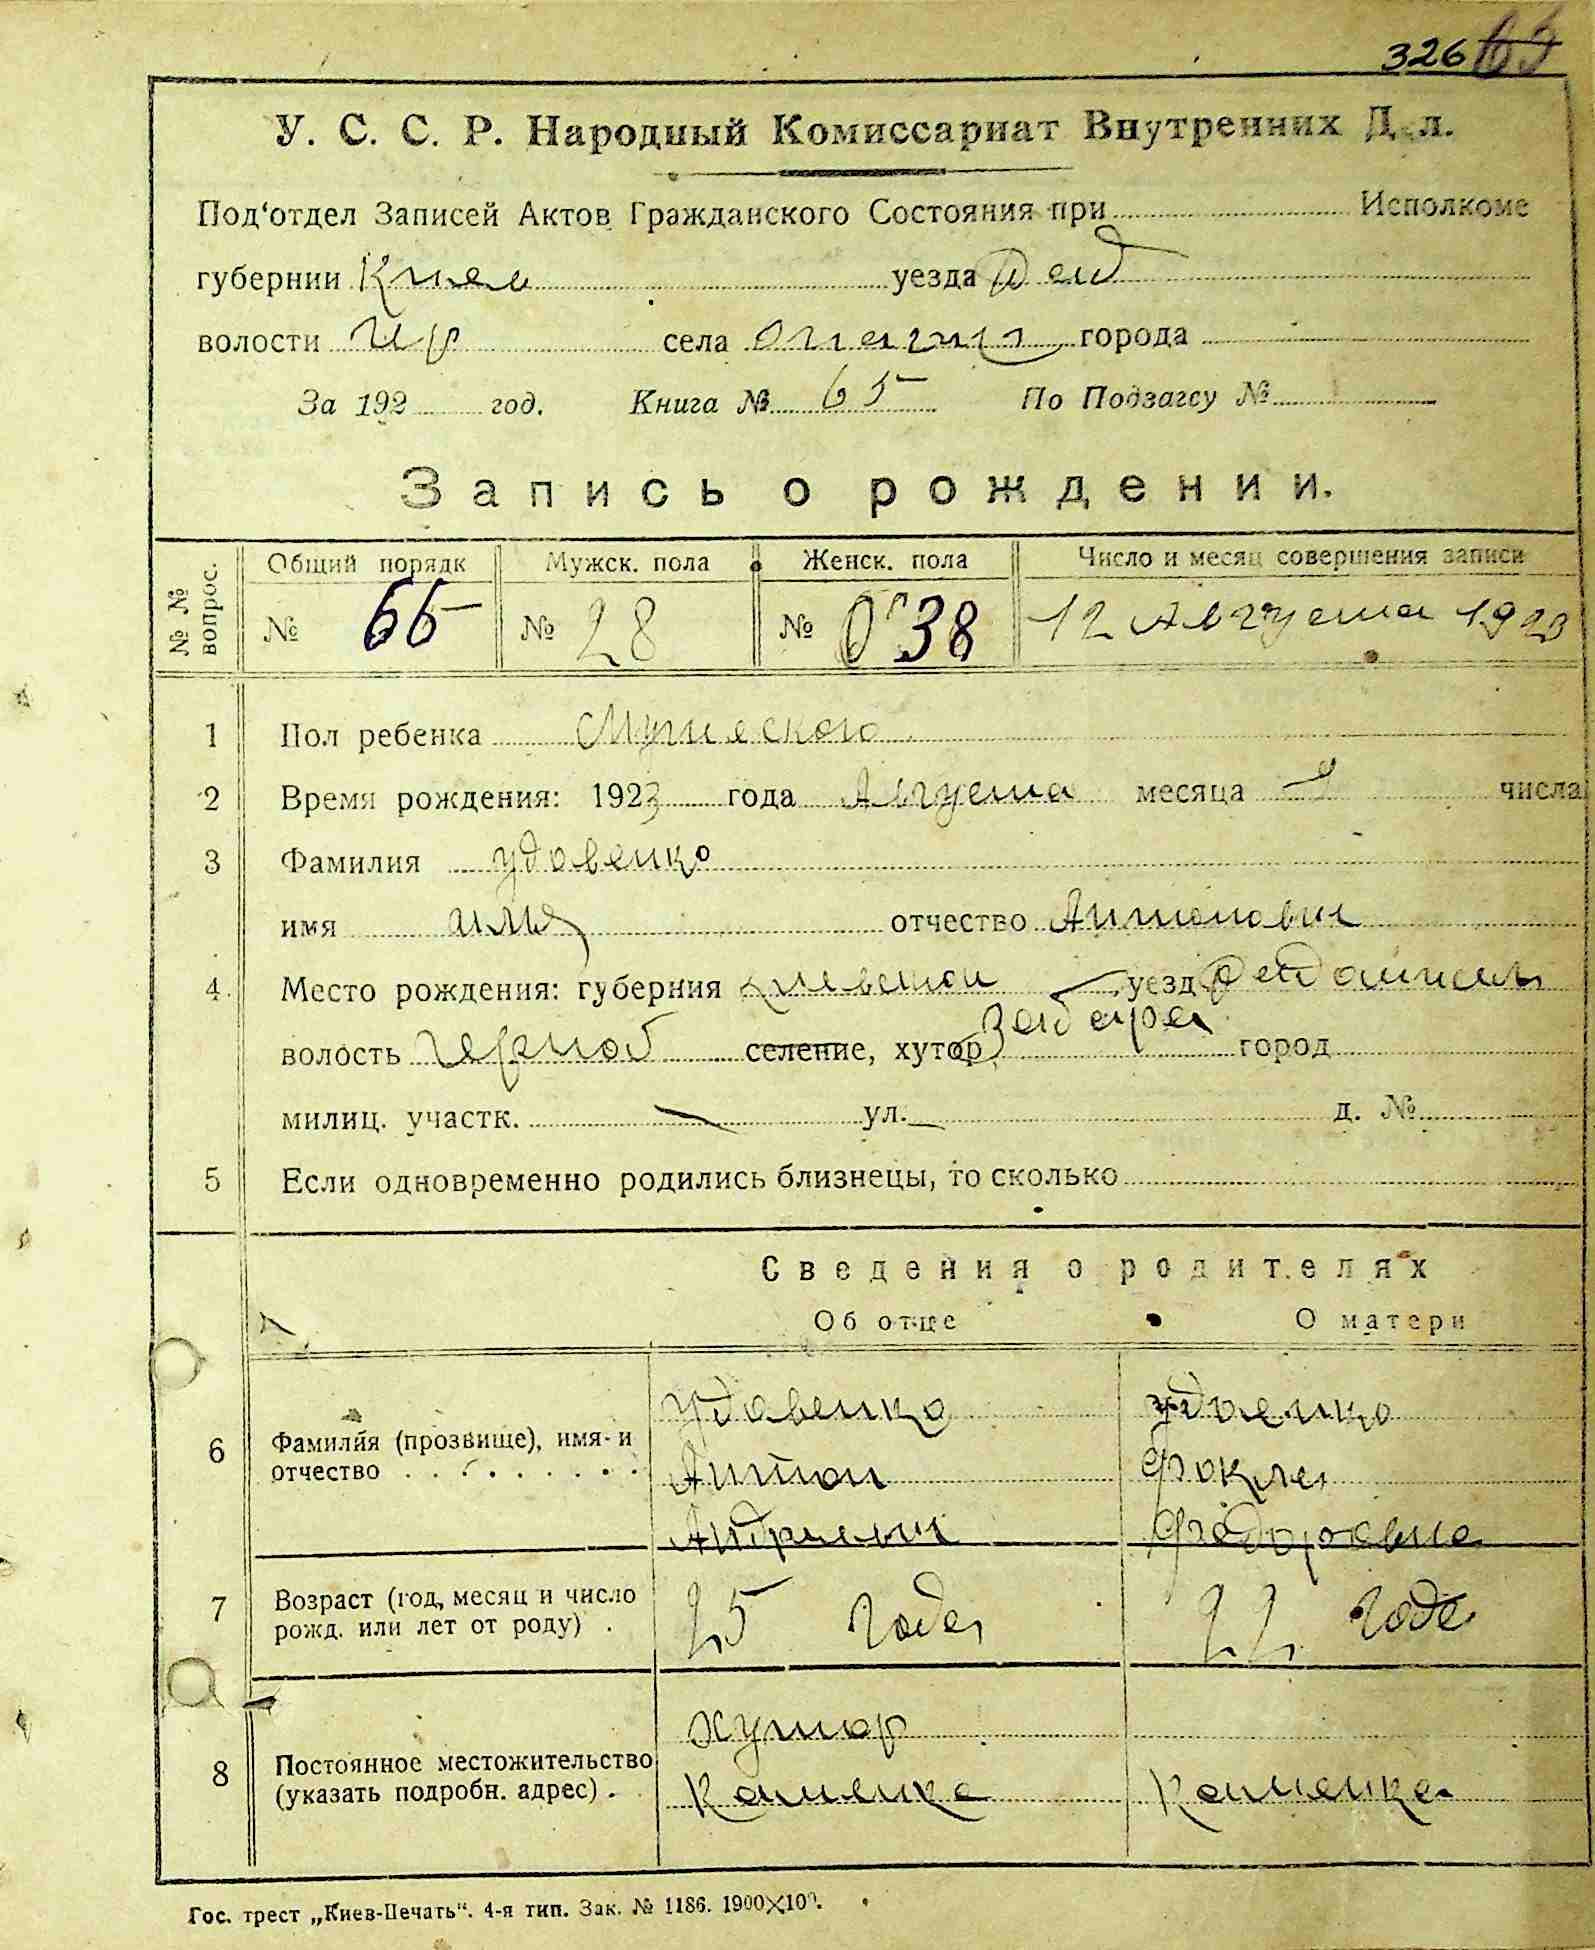 326 65
У. С. С. Р. Народный Комиссариат Внутренних Дел.
Под'отдел Записей Актов Гражданского Состояния при Исполкоме
губернии Киев уезда
волости села города
За 192 год. Книга № 65 По Подзагсу №
Запись о рождении.
№ № вопрос. Общий порядк Мужск. пола Женск. пола Число и месяц совершения записи
№ 66 № 28 № 38 12 Августа 1923
1 Пол ребенка Мужеского
2 Время рождения: 1923 года Августа месяца 9 числа
3 Фамилия Удовенко
имя отчество Антонович
4. Место рождения: губерния уезд
волость селение, хутор город
милиц. участк. ул. д. №
5 Если одновременно родились близнецы, то сколько
Сведения о родителях
Об отце О матери
6 Фамилия (прозвище), имя и отчество
Удовенко
Антон
Фокла
Федоровна
7 Возраст (год, месяц и число рожд. или лет от роду) . 25 года 22 года
8 Постоянное местожительство (указать подробн. адрес) .
хутор
Каменка Каменка
Гос. трест „Киев-Печать“. 4-я тип. Зак. № 1186. 1900×100.